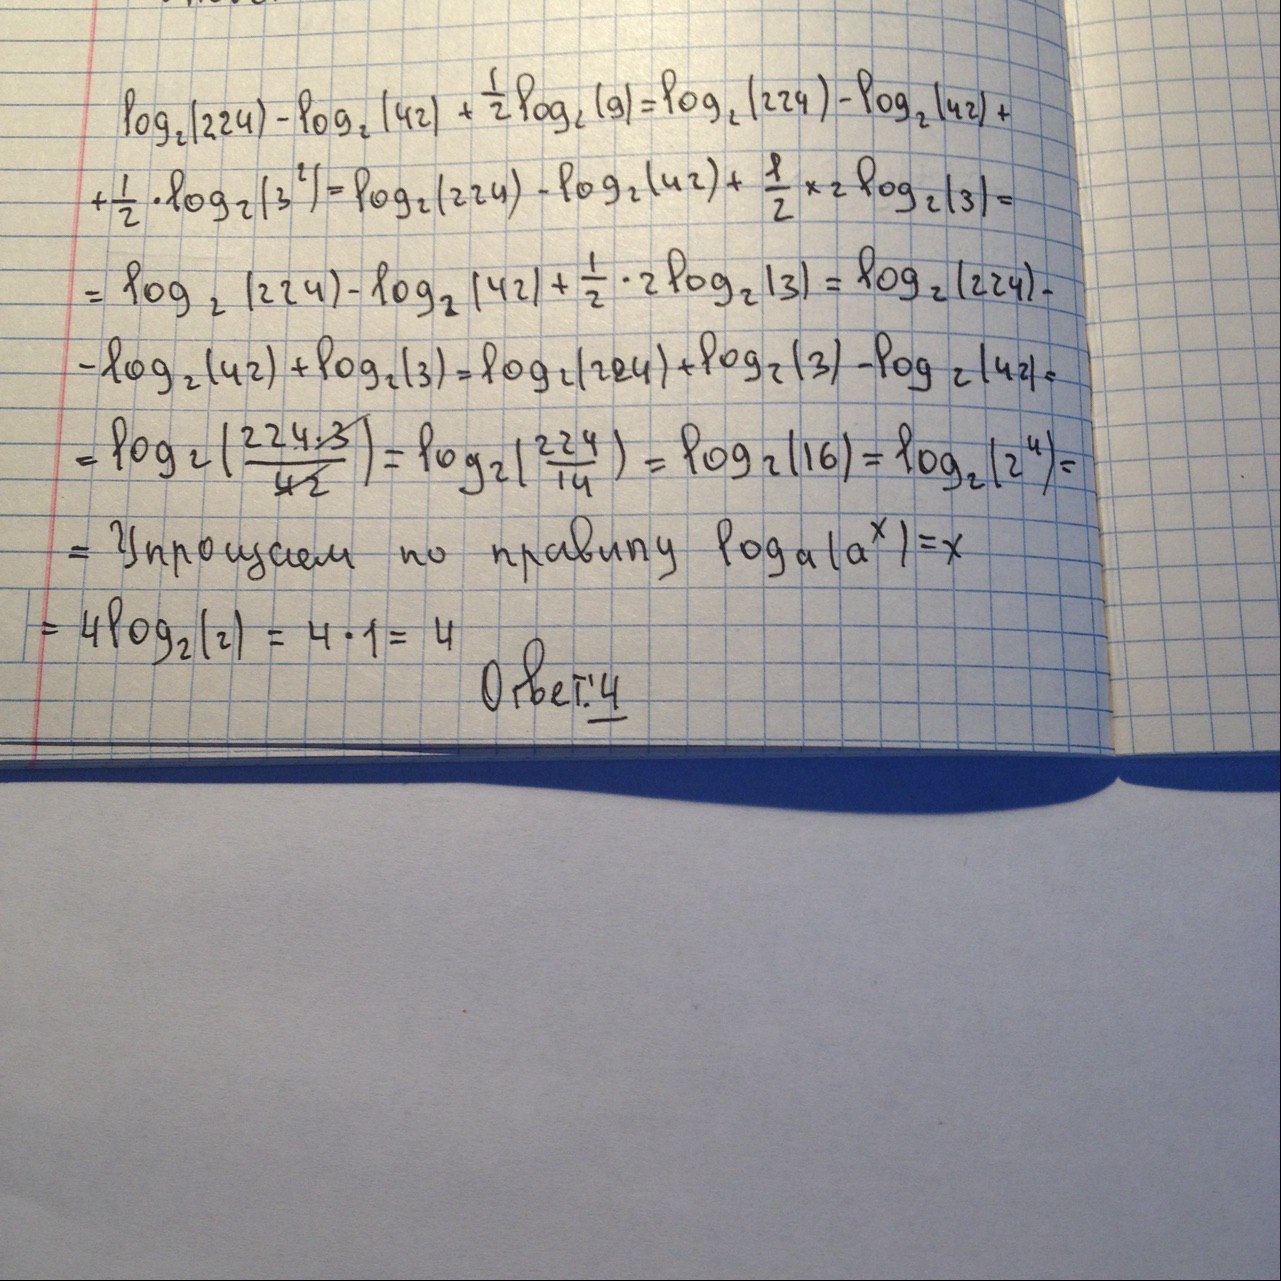 log₂(224) - log₂(42) + 1/2 log₂(9) = log₂(224) - log₂(42) +
+ 1/2 · log₂(3²) = log₂(224) - log₂(42) + 1/2 × 2 log₂(3) =
= log₂(224) - log₂(42) + 1/2 · 2 log₂(3) = log₂(224) -
- log₂(42) + log₂(3) = log₂(224) + log₂(3) - log₂(42) =
= log₂(224·3/42) = log₂(224/14) = log₂(16) = log₂(2⁴) =
= Упрощаем по правилу logₐ(aˣ) = x
= 4log₂(2) = 4 · 1 = 4
Ответ: 4